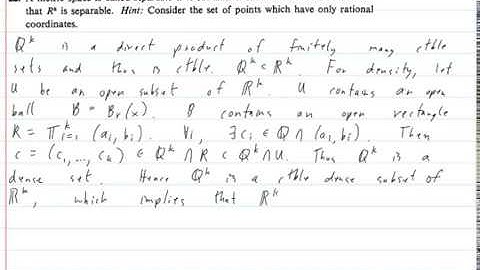 that Rᵏ is separable. Hint: Consider the set of points which have only rational
coordinates.
ℚᵏ is a direct product of finitely many ctble
sets and thus is ctble. ℚᵏ ⊂ ℝᵏ. For density, let
U be an open subset of ℝᵏ. U contains an open
ball B = Bᵣ(x). B contains an open rectangle
R = ∏ᵏᵢ₌₁ (aᵢ, bᵢ). ∀i, ∃cᵢ ∈ ℚ ∩ (aᵢ, bᵢ). Then
c = (c₁, ..., cₖ) ∈ ℚᵏ ∩ R ⊂ ℚᵏ ∩ U. Thus ℚᵏ is a
dense set. Hence ℚᵏ is a ctble dense subset of
ℝᵏ, which implies that ℝᵏ